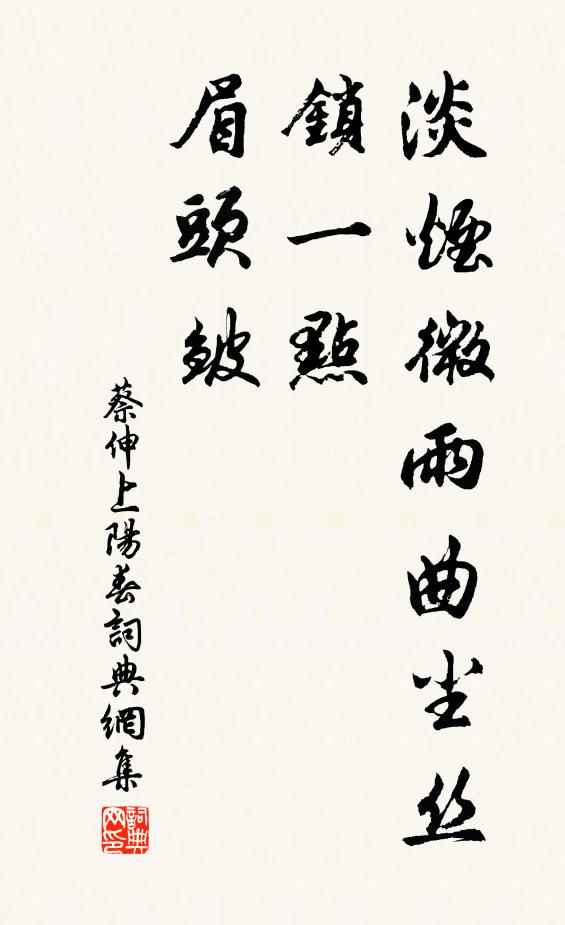 淡煙微雨曲尘丝
鎖一點
眉頭皴
蔡伸上陽春詞典網集
詞典网印